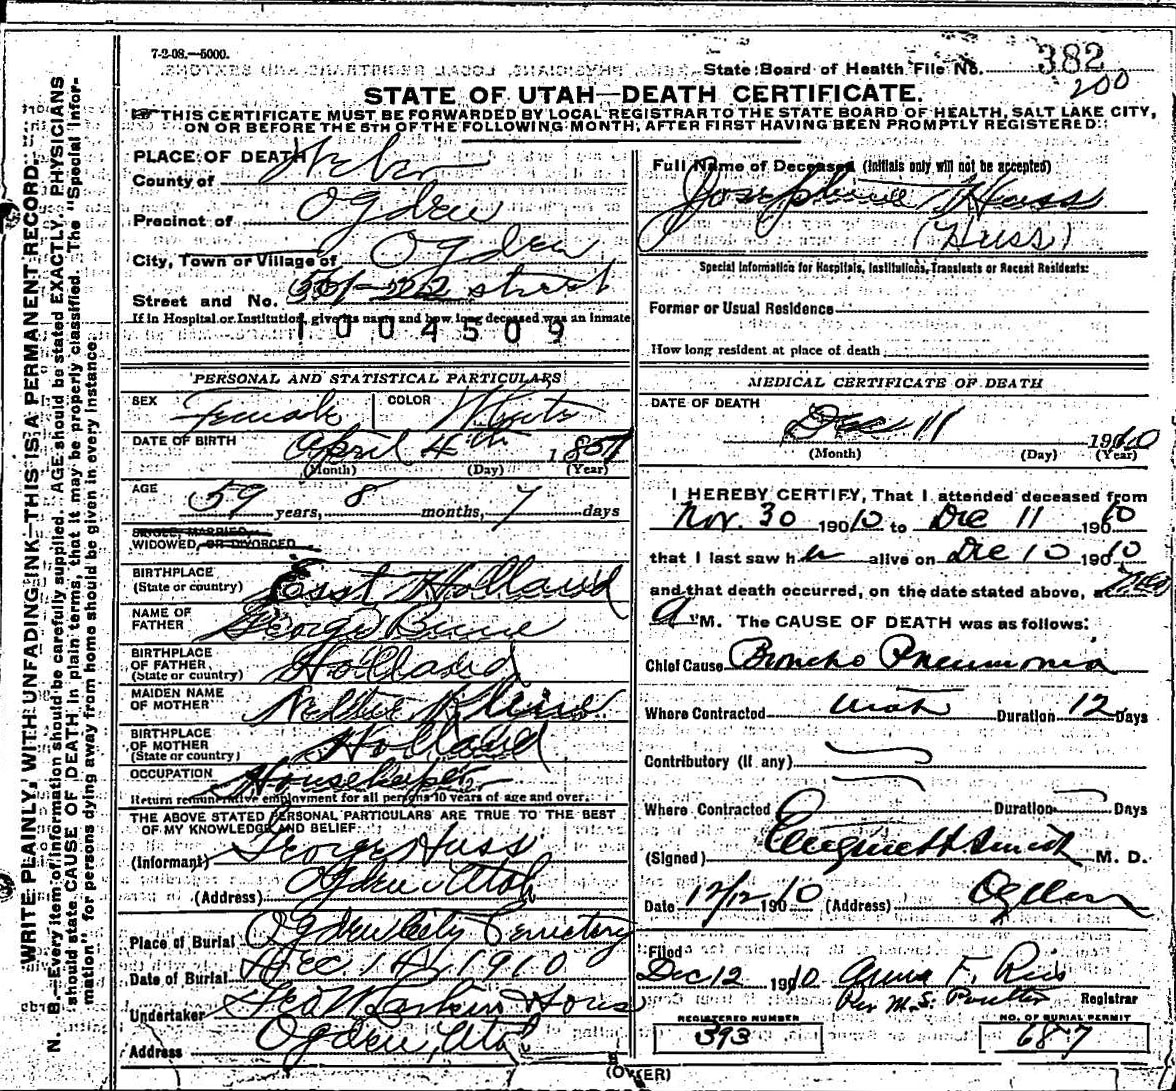 7-2-08.—5000.
State Board of Health File No. 382
200
STATE OF UTAH—DEATH CERTIFICATE.
THIS CERTIFICATE MUST BE FORWARDED BY LOCAL REGISTRAR TO THE STATE BOARD OF HEALTH, SALT LAKE CITY,
ON OR BEFORE THE 5TH OF THE FOLLOWING MONTH, AFTER FIRST HAVING BEEN PROMPTLY REGISTERED.
WRITE PLAINLY, WITH UNFADING INK—THIS IS A PERMANENT RECORD.
N. B.—Every item of information should be carefully supplied. AGE should be stated EXACTLY. PHYSICIANS
should state CAUSE OF DEATH in plain terms, that it may be properly classified. The "Special Infor-
mation" for persons dying away from home should be given in every instance.
PLACE OF DEATH
County of Weber
Precinct of Ogden
City, Town or Village of Ogden
Street and No. 22 street
If in Hospital or Institution, give its name and how long deceased was an inmate
1004509
PERSONAL AND STATISTICAL PARTICULARS
SEX Female COLOR White
DATE OF BIRTH April 4th 1851
(Month) (Day) (Year)
AGE 59 years, 8 months, 7 days
SINGLE, MARRIED,
WIDOWED, OR DIVORCED
BIRTHPLACE
(State or country) Holland
NAME OF
FATHER George
BIRTHPLACE
OF FATHER
(State or country) Holland
MAIDEN NAME
OF MOTHER Nellie
BIRTHPLACE
OF MOTHER
(State or country) Holland
OCCUPATION Housekeeper
Return remunerative employment for all persons 10 years of age and over.
THE ABOVE STATED PERSONAL PARTICULARS ARE TRUE TO THE BEST
OF MY KNOWLEDGE AND BELIEF
(Informant) George Huss
(Address) Ogden Utah
Place of Burial Ogden City Cemetery
Date of Burial Dec 14, 1910
Undertaker Larkin
Address Ogden, Utah
Full Name of Deceased (Initials only will not be accepted)
Josephine Huss
(Huss)
Special Information for Hospitals, Institutions, Transients or Recent Residents:
Former or Usual Residence
How long resident at place of death
MEDICAL CERTIFICATE OF DEATH
DATE OF DEATH
Dec 11 1910
(Month) (Day) (Year)
I HEREBY CERTIFY, That I attended deceased from
Nov. 30 190 10 to Dec 11 190 10
that I last saw her alive on Dec 10 190 10
and that death occurred, on the date stated above, at
A M. The CAUSE OF DEATH was as follows:
Chief Cause Broncho Pneumonia
Where Contracted Utah Duration 12 Days
Contributory (if any)
Where Contracted Duration Days
(Signed) M. D.
Date 12/12 190 10 (Address) Ogden
Filed
Dec 12 190 10 Anna F.
Per M. S. Poulter Registrar
REGISTERED NUMBER
393
NO. OF BURIAL PERMIT
687
(OVER)